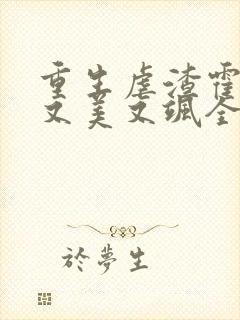 重生虐渣霍
又美又飒全
於梦生